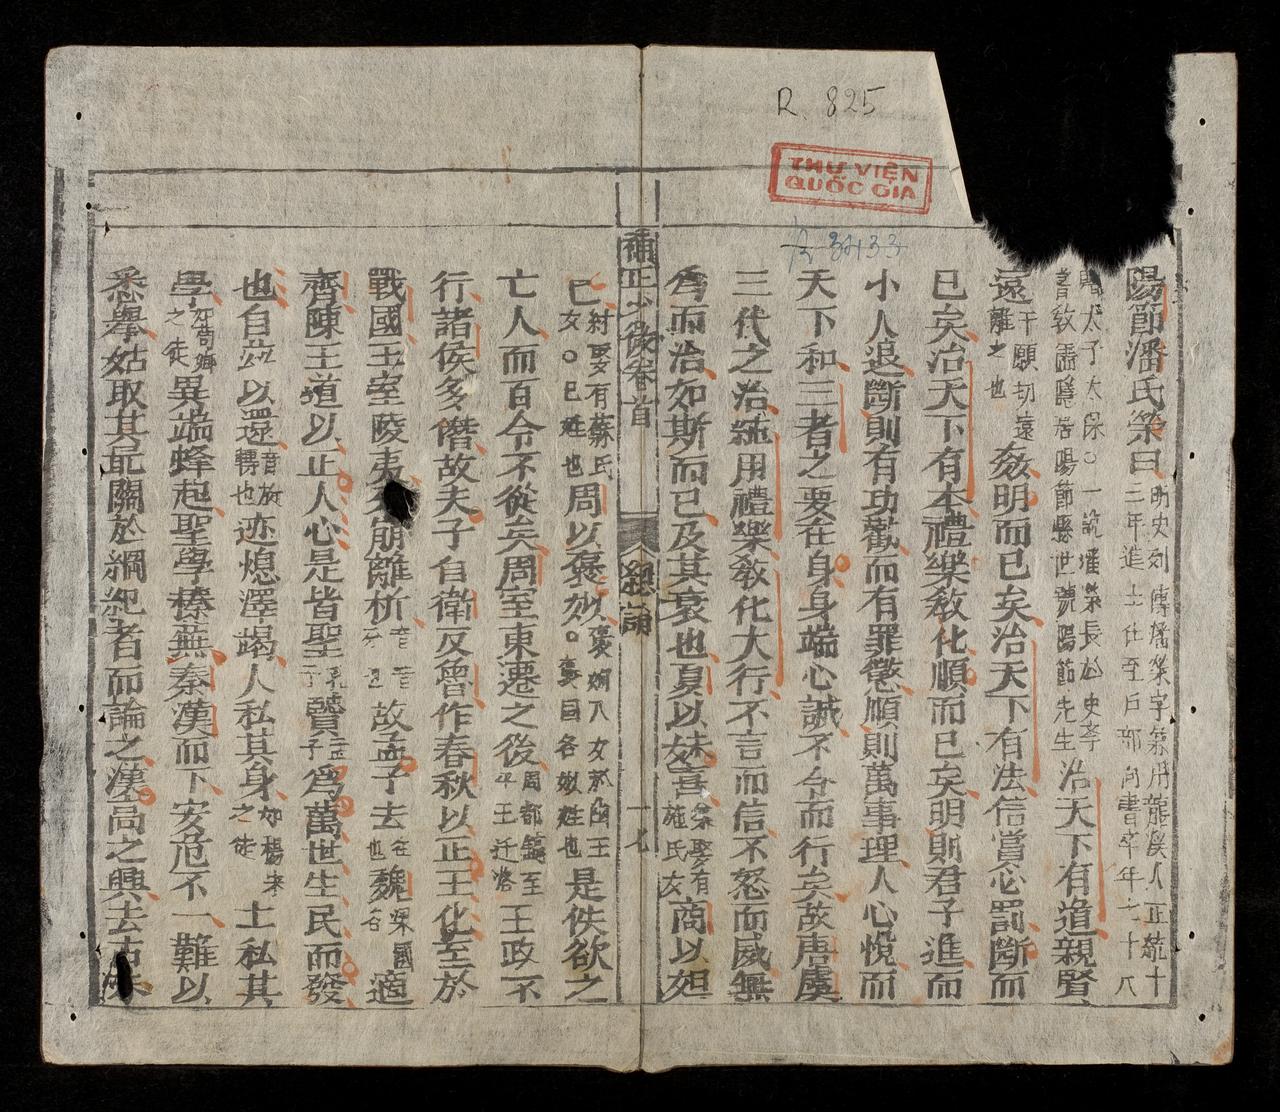 R. 825
THƯ VIỆN
QUỐC GIA
陽節潘氏榮曰明史列傳潘榮字尊用龍溪人正統十三年進士仕至戶部尚書卒年七十八
贈太子太保○一說潘榮長於史學
書教諭隱居陽節縣世號陽節先生治天下有道親賢
遠于願切遠離之也奸明而已矣治天下有法信當心罰斷而
已矣治天下有本禮樂教化順而已矣明則君子進而
小人退斷則有功勸而有罪懲順則萬事理人心悅而
天下和三者之要在身身端心誠不令而行矣故唐虞
三代之治純用禮樂教化大行不言而信不怒而威無
為而治如斯而已及其衰也夏以妹喜桀娶有施氏女商以妲
補正少微卷首
總論
己紂娶有蘇氏女○己姓也周以褒姒○褒國各姒姓也是佚欲之
亡人而百令不從矣周室東遷之後周都鎬至平王迁洛王政不
行諸侯多僭故夫子自衛反魯作春秋以正王化至於
戰國王室陵夷分崩離析故孟子去魏梁國適
齊陳王道以正人心是皆聖賢為萬世生民而發
也自茲以還音旋轉也迹熄澤竭人私其身如楊朱之徒士私其
學如荀卿之徒異端蜂起聖學榛蕪秦漢而下安危不一難以
悉舉姑取其最關於綱紀者而論之漢高之興去古未